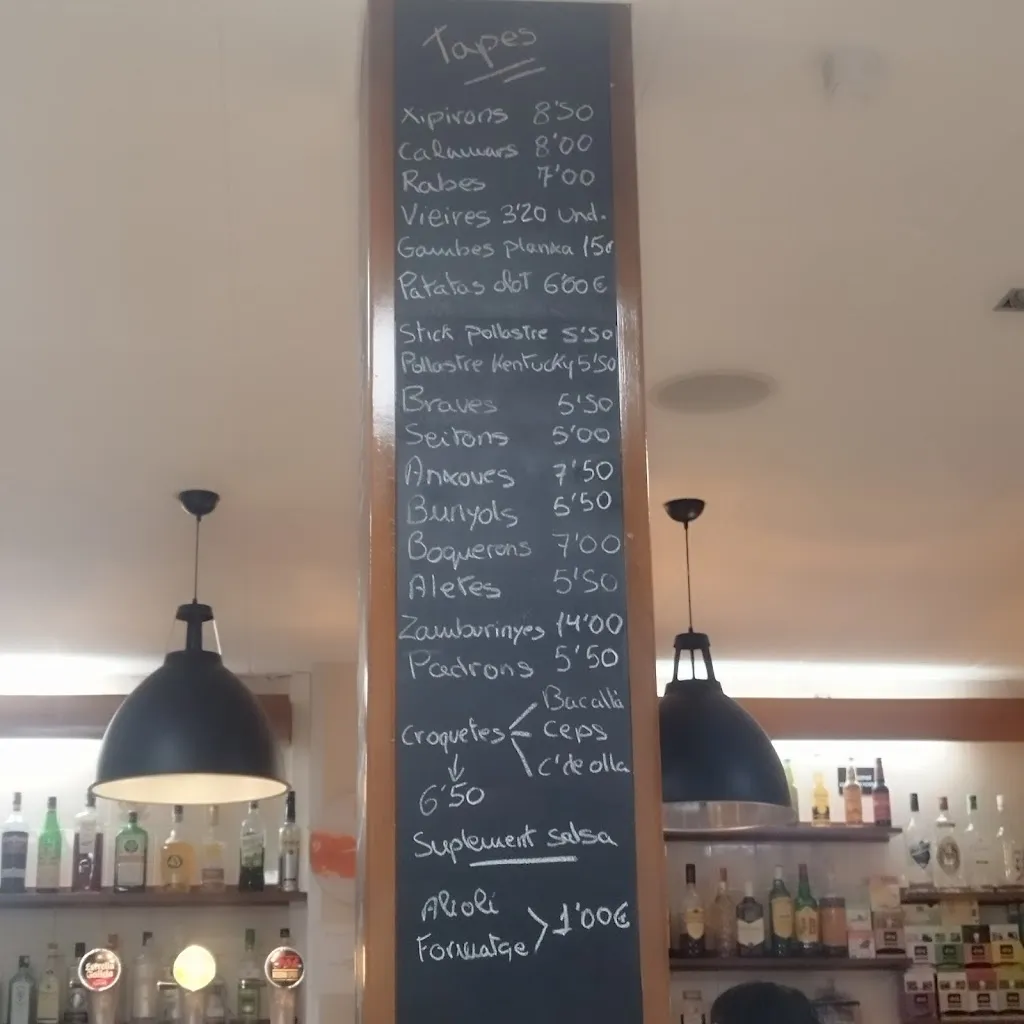 Tapes
Xipirons 8'50
Calamars 8'00
Rabes 7'00
Vieires 3'20 Und.
Gambes planxa 15€
Patatas d'Ot 6'00€
Stick pollastre 5'50
Pollastre Kentucky 5'50
Braves 5'50
Seitons 5'00
Anxoves 7'50
Bunyols 5'50
Boquerons 7'00
Aletes 5'50
Zamburinyes 14'00
Padrons 5'50
Bacallà
Croquetes Ceps
C'de olla
6'50
Suplement salsa
Alioli
1'00€
Formatge
Estrella
Galicia